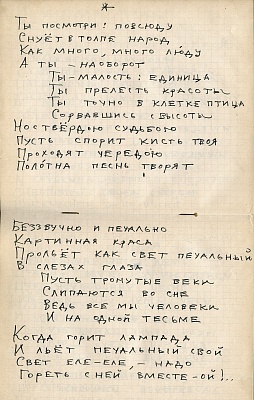 Ты посмотри: повсюду
Снуёт в толпе народ
Как много, много люду
А ты – наоборот
Ты – малость: единица
Ты прелесть красоты
Ты точно в клетке птица
Сорвавшись с высоты
Но с твёрдою судьбою
Пусть спорит кисть твоя
Проходят чередою
Полотна песнь творят
Беззвучно и печально
Картинная краса
Прольёт как свет печальный
В слезах глаза
Пусть тронутые веки
Слипаются во сне
Ведь все мы человеки
И на одной тесьме
Когда горит лампада
И льёт печальный свой
Свет еле-еле, – надо
Гореть с ней вместе – ой!..